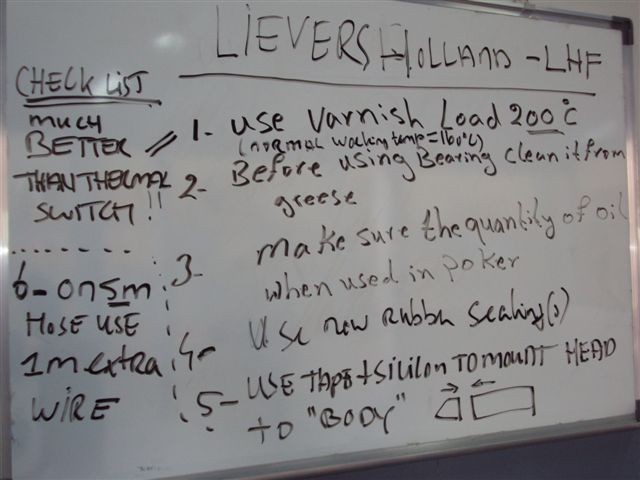 LIEVERS HOLLAND - LHF
CHECK LIST
MUCH
BETTER
THAN THERMAL
SWITCH!!
.......
6- ON 5m
HOSE USE
1m extra
WIRE
1- USE Varnish Load 200°C
(NORMAL working temp=160°C)
2- Before using Bearing clean it from
greese
3- make sure the quantity of oil
when used in poker
4- Use new Rubber Sealing(s)
5- USE TAPE + SILILON TO MOUNT HEAD
to "BODY"